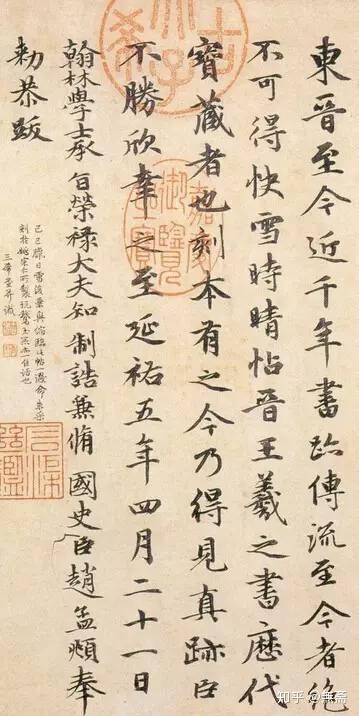 東晉至今近千年書跡傳流至今者絶
不可得快雪時晴帖晉王羲之書歷代
寶藏者也刻本有之今乃得見真跡臣
不勝欣幸之至延祐五年四月二十一日
翰林學士承旨榮祿大夫知制誥兼脩國史臣趙孟頫奉
勑恭跋
三希堂并識
嘉慶御覽之寶
知乎 @無斋